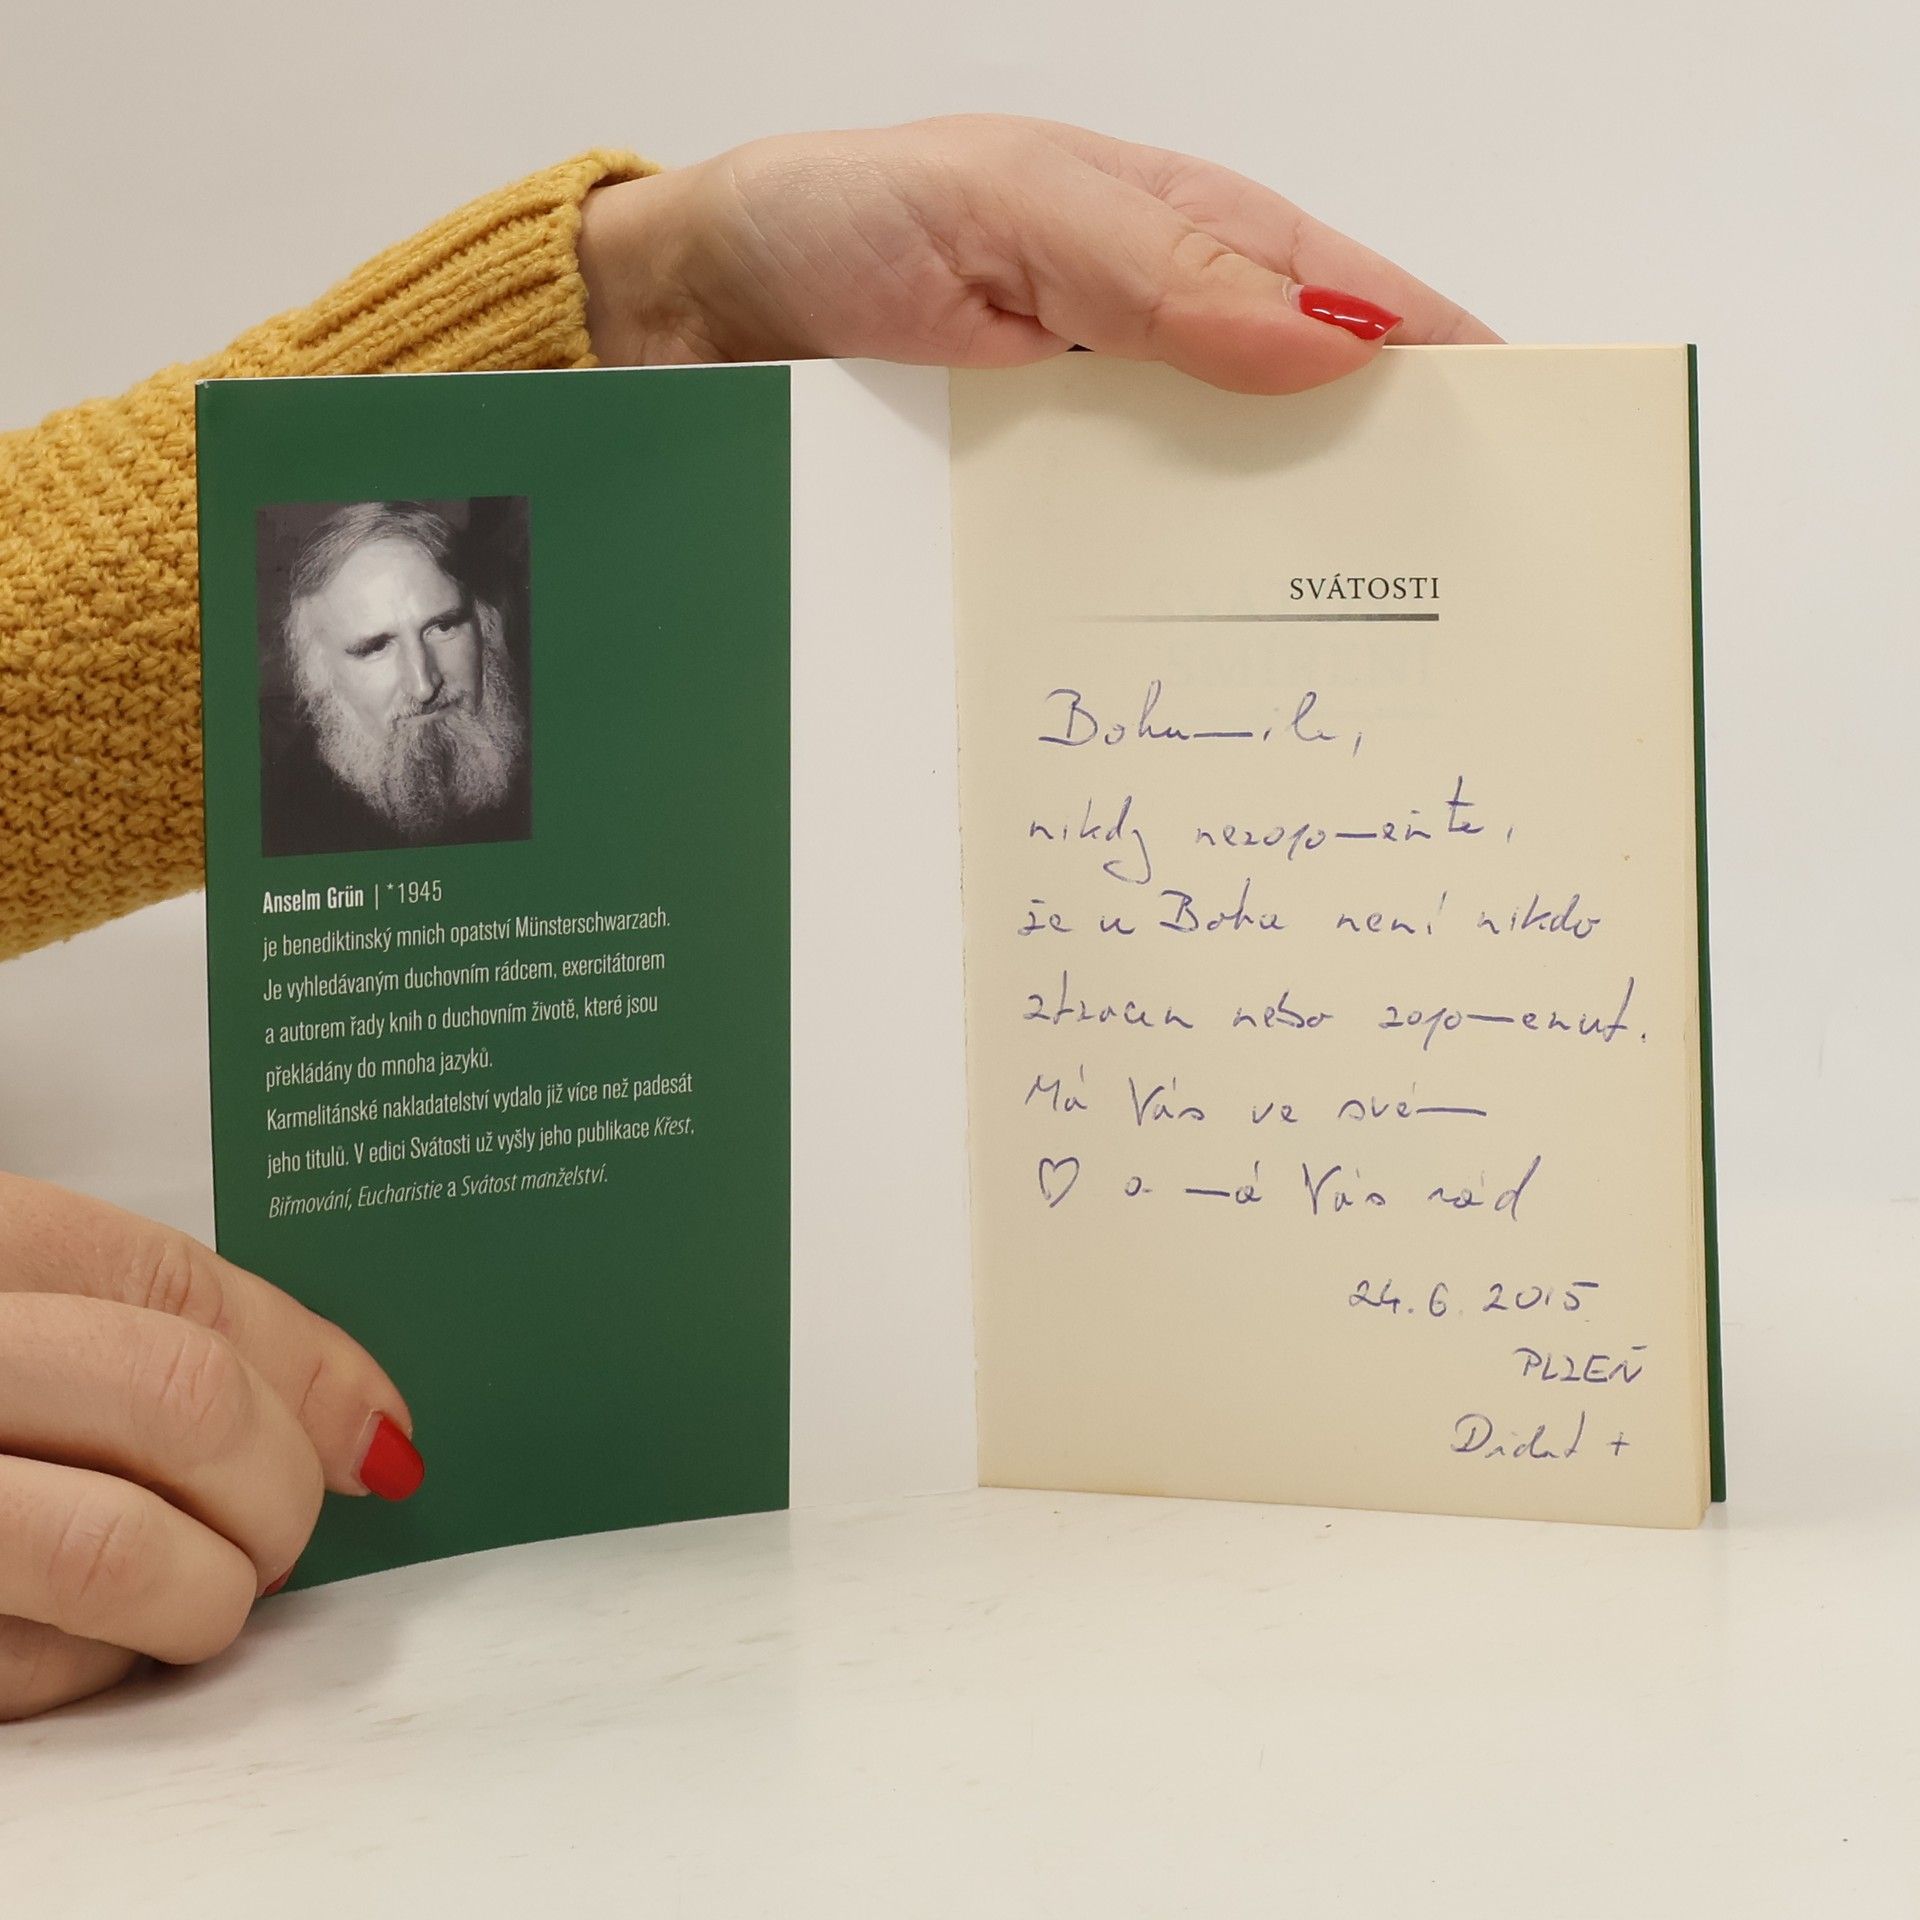 Anselm Grün | *1945
je benediktinský mnich opatství Münsterschwarzach.
Je vyhledávaným duchovním rádcem, exercitátorem
a autorem řady knih o duchovním životě, které jsou
překládány do mnoha jazyků.
Karmelitánské nakladatelství vydalo již více než padesát
jeho titulů. V edici Svátosti už vyšly jeho publikace Křest,
Biřmování, Eucharistie a Svátost manželství.
SVÁTOSTI
Bohumile,
nikdy nezapomeňte,
že u Boha není nikdo
ztracen nebo zapomenut.
Má Vás ve svém
♡ a má Vás rád
24.6.2015
PLZEŇ